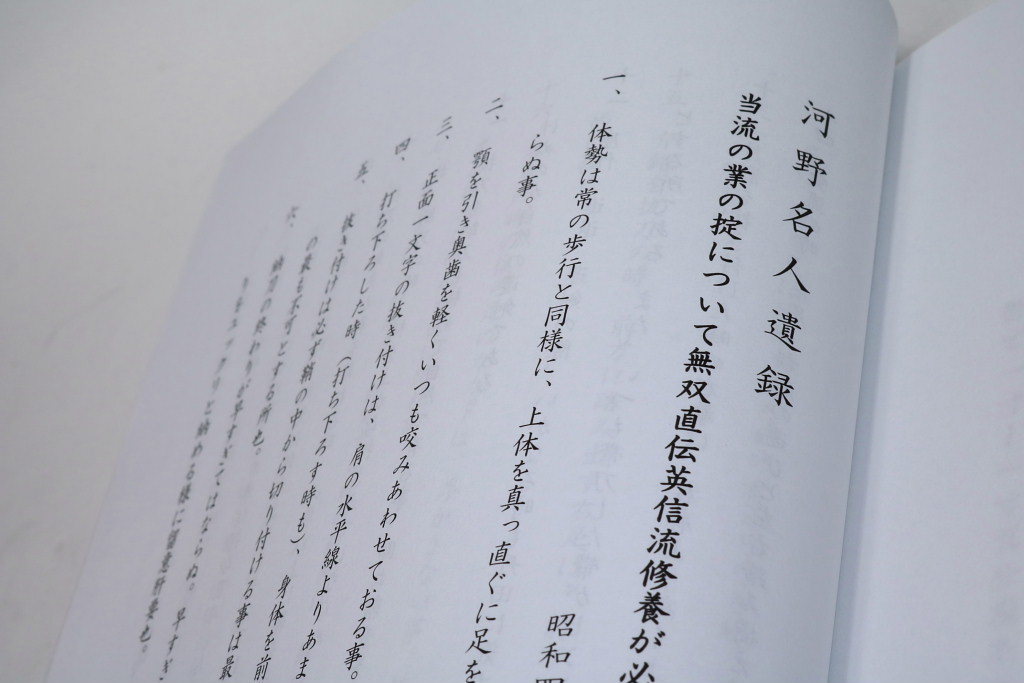 河野名人遺録
当流の業の掟について無双直伝英信流修養が必
昭和四
一、体勢は常の歩行と同様に、上体を真っ直ぐに足を
らぬ事。
二、顎を引き奥歯を軽くいつも咬みあわせておる事。
三、正面一文字の抜き付けは、肩の水平線よりあま
四、打ち下ろした時(打ち下ろす時も)、身体を前
五、抜き付けは必ず鞘の中から切り付ける事は最
の最も不可とする所也。
六、納刀の終わりが早すぎてはならぬ。早すぎ
りをユックリと納める様に留意肝要也。